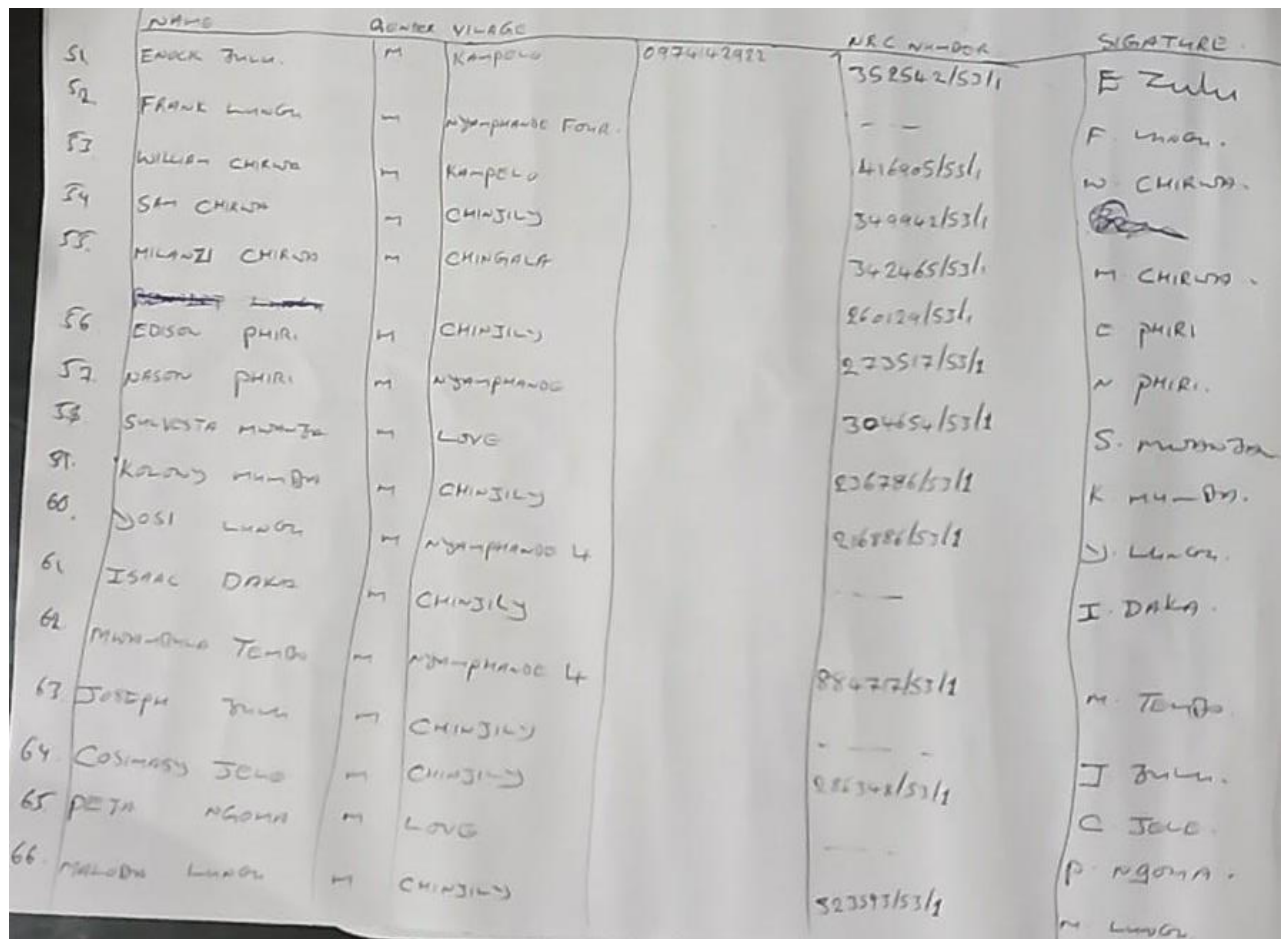 NAME GENDER VILAGE NRC NUMBER SIGATURE
51 ENOCK ZULU. M KAMPELO 0974142982 352542/53/1 E Zulu
52 FRANK LUNGU M NYAMPHANDE FOUR. - - F. LUNGU.
53 WILLIAM CHIRWA M KAMPELO 416905/53/1 W. CHIRWA.
54 SAM CHIRWA M CHINJILY 349942/53/1
55. MILANZI CHIRWA M CHINGALA 342465/53/1 M CHIRWA.
56 EDISON PHIRI M CHINJILY 260129/53/1 E PHIRI
57. NASON PHIRI M NYAMPHANDE 273517/53/1 N PHIRI.
58. SULVESTA MWANZA M LOVE 304654/53/1 S. MWANZA
59. KOLONY MUMBA M CHINJILY 236786/53/1 K MUMBA.
60. YOSI LUNGU M NYAMPHANDE 4 216886/53/1 Y. LUNGU.
61 ISAAC DAKA M CHINJILY - - - I. DAKA.
62. TEMBO M NYAMPHANDE 4 88477/53/1 M. TEMBO.
63 JOSEPH ZULU M CHINJILY - - - - J ZULU.
64. COSIMASY JELE M CHINJILY 286348/53/1 C JELE.
65 PETA NGOMA M LOVE - - - - P. NGOMA.
66. MALODA LUNGU M CHINJILY 323593/53/1 M LUNGU